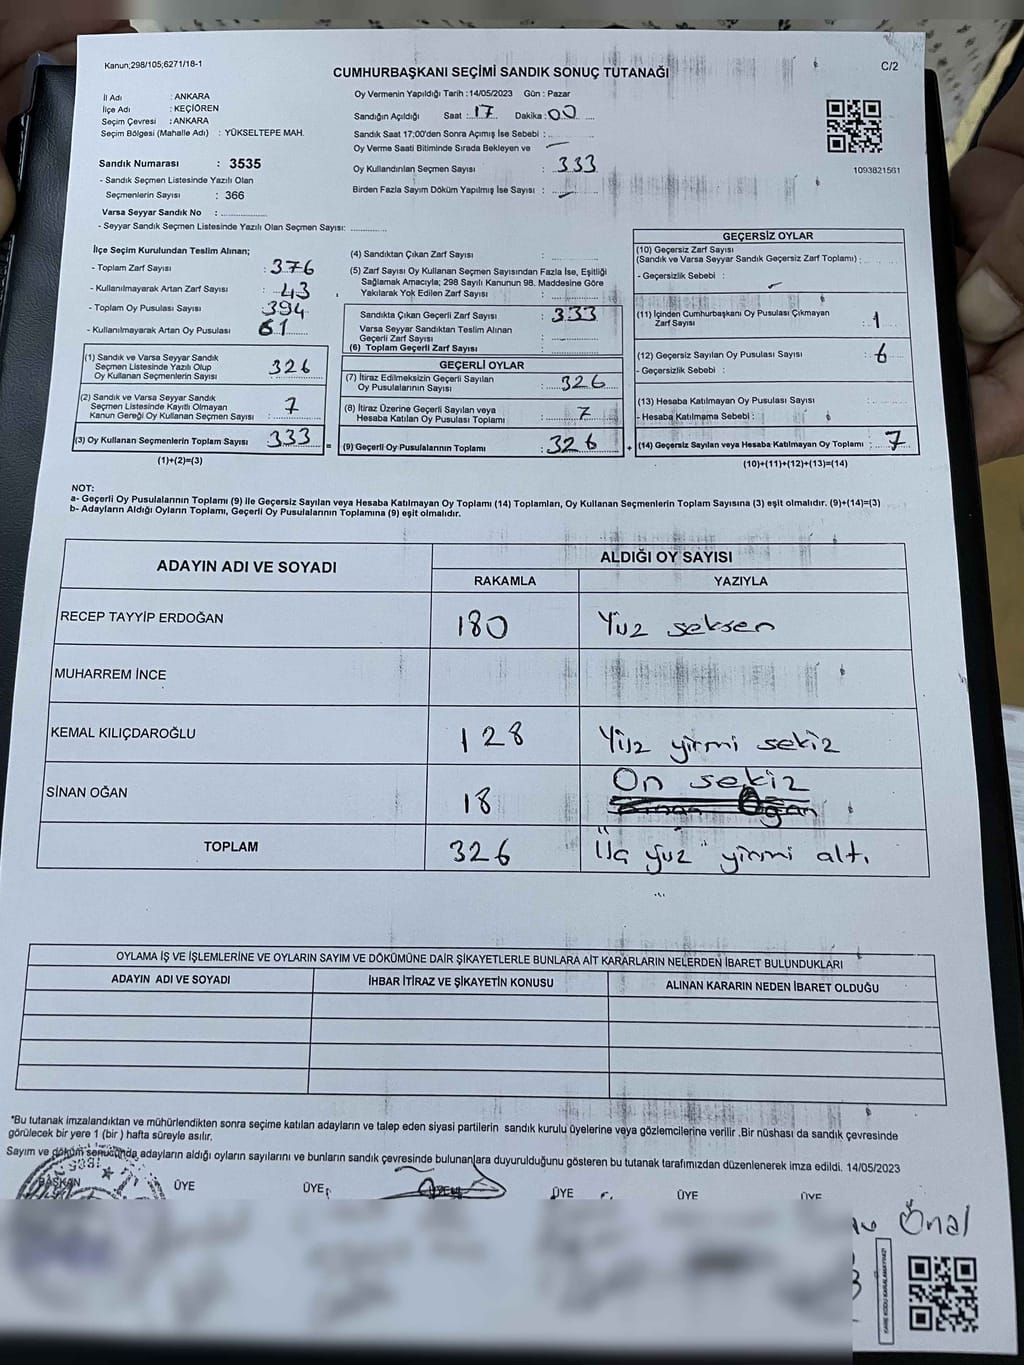 Kanun;298/105;6271/18-1
C/2
CUMHURBAŞKANI SEÇİMİ SANDIK SONUÇ TUTANAĞI
İl Adı : ANKARA
İlçe Adı : KEÇİÖREN
Seçim Çevresi : ANKARA
Seçim Bölgesi (Mahalle Adı) : YÜKSELTEPE MAH.
Sandık Numarası : 3535
- Sandık Seçmen Listesinde Yazılı Olan
Seçmenlerin Sayısı : 366
Varsa Seyyar Sandık No : ..............
- Seyyar Sandık Seçmen Listesinde Yazılı Olan Seçmen Sayısı: ............
Oy Vermenin Yapıldığı Tarih :14/05/2023 Gün : Pazar
Sandığın Açıldığı Saat : 17 Dakika : 00
Sandık Saat 17:00'den Sonra Açımış İse Sebebi :
Oy Verme Saati Bitiminde Sırada Bekleyen ve
Oy Kullandırılan Seçmen Sayısı : 333
Birden Fazla Sayım Döküm Yapılmış İse Sayısı : -
1093821561
İlçe Seçim Kurulundan Teslim Alınan;
- Toplam Zarf Sayısı : 376
- Kullanılmayarak Artan Zarf Sayısı : 43
- Toplam Oy Pusulası Sayısı : 394
- Kullanılmayarak Artan Oy Pusulası : 61
(1) Sandık ve Varsa Seyyar Sandık
Seçmen Listesinde Yazılı Olup
Oy Kullanan Seçmenlerin Sayısı 326
(2) Sandık ve Varsa Seyyar Sandık
Seçmen Listesinde Kayıtlı Olmayan
Kanun Gereği Oy Kullanan Seçmen Sayısı : 7
(3) Oy Kullanan Seçmenlerin Toplam Sayısı : 333 =
(1)+(2)=(3)
(4) Sandıktan Çıkan Zarf Sayısı :
(5) Zarf Sayısı Oy Kullanan Seçmen Sayısından Fazla İse, Eşitliği
Sağlamak Amacıyla; 298 Sayılı Kanunun 98. Maddesine Göre
Yakılarak Yok Edilen Zarf Sayısı :
Sandıkta Çıkan Geçerli Zarf Sayısı : 333
Varsa Seyyar Sandıktan Teslim Alınan
Geçerli Zarf Sayısı :
(6) Toplam Geçerli Zarf Sayısı :
GEÇERLİ OYLAR
(7) İtiraz Edilmeksizin Geçerli Sayılan
Oy Pusulalarının Sayısı : 326
(8) İtiraz Üzerine Geçerli Sayılan veya
Hesaba Katılan Oy Pusulası Toplamı : 7
(9) Geçerli Oy Pusulalarının Toplamı : 326 +
GEÇERSİZ OYLAR
(10) Geçersiz Zarf Sayısı
(Sandık ve Varsa Seyyar Sandık Geçersiz Zarf Toplamı) :
- Geçersizlik Sebebi :
(11) İçinden Cumhurbaşkanı Oy Pusulası Çıkmayan
Zarf Sayısı : 1
(12) Geçersiz Sayılan Oy Pusulası Sayısı : 6
- Geçersizlik Sebebi :
(13) Hesaba Katılmayan Oy Pusulası Sayısı :
- Hesaba Katılmama Sebebi :
(14) Geçersiz Sayılan veya Hesaba Katılmayan Oy Toplamı : 7
(10)+(11)+(12)+(13)=(14)
NOT:
a- Geçerli Oy Pusulalarının Toplamı (9) ile Geçersiz Sayılan veya Hesaba Katılmayan Oy Toplamı (14) Toplamları, Oy Kullanan Seçmenlerin Toplam Sayısına (3) eşit olmalıdır. (9)+(14)=(3)
b- Adayların Aldığı Oyların Toplamı, Geçerli Oy Pusulalarının Toplamına (9) eşit olmalıdır.
ADAYIN ADI VE SOYADI
ALDIĞI OY SAYISI
RAKAMLA YAZIYLA
RECEP TAYYİP ERDOĞAN 180 Yüz seksen
MUHARREM İNCE
KEMAL KILIÇDAROĞLU 128 Yüz yirmi sekiz
SİNAN OĞAN 18 On sekiz
TOPLAM 326 Üç yüz yirmi altı
OYLAMA İŞ VE İŞLEMLERİNE VE OYLARIN SAYIM VE DÖKÜMÜNE DAİR ŞİKAYETLERLE BUNLARA AİT KARARLARIN NELERDEN İBARET BULUNDUKLARI
ADAYIN ADI VE SOYADI İHBAR İTİRAZ VE ŞİKAYETİN KONUSU ALINAN KARARIN NEDEN İBARET OLDUĞU
"Bu tutanak imzalandıktan ve mühürlendikten sonra seçime katılan adayların ve talep eden siyasi partilerin sandık kurulu üyelerine veya gözlemcilerine verilir .Bir nüshası da sandık çevresinde
görülecek bir yere 1 (bir ) hafta süreyle asılır.
Sayım ve döküm sonucunda adayların aldığı oyların sayılarını ve bunların sandık çevresinde bulunanlara duyurulduğunu gösteren bu tutanak tarafımızdan düzenlenerek imza edildi. 14/05/2023
BAŞKAN ÜYE ÜYE ÜYE ÜYE ÜYE
Önal